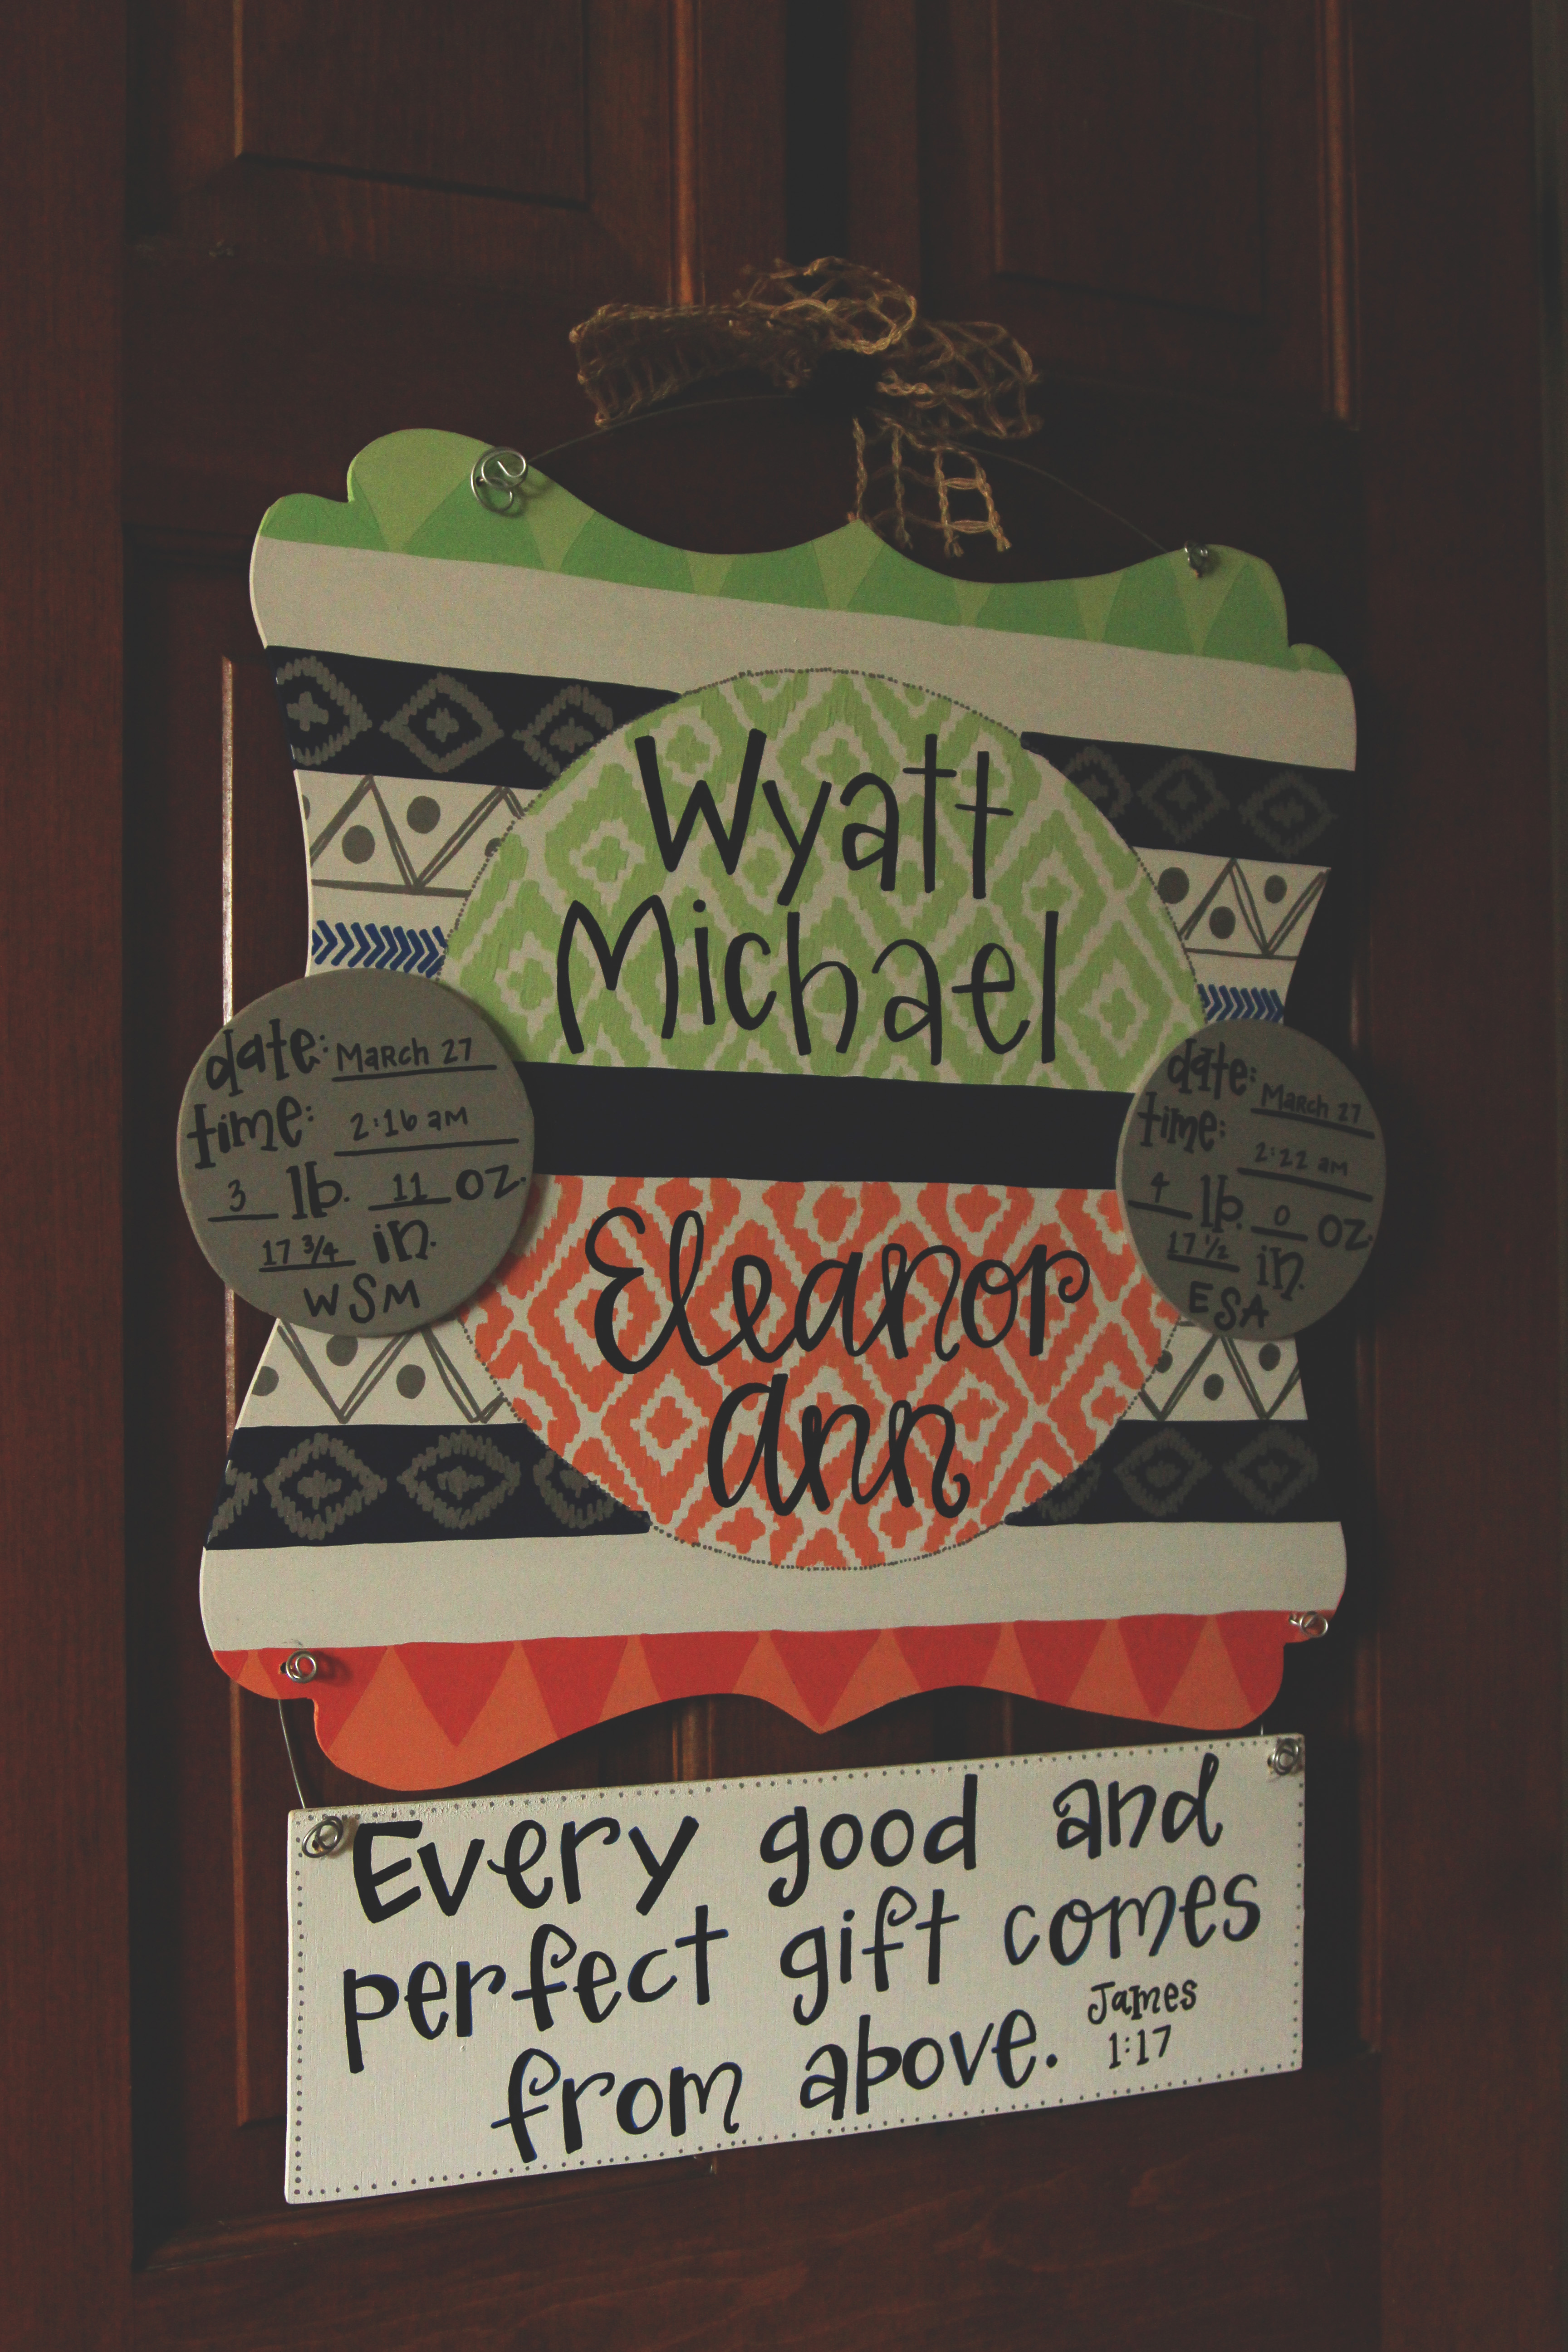 Wyatt
Michael
date: March 27
time: 2:16 am
3 lb. 11 oz.
17 3/4 in.
WSM
date: March 27
time: 2:22 am
4 lb. 0 oz.
17 1/2 in.
ESA
Eleanor
ann
Every good and
perfect gift comes
from above. James
1:17